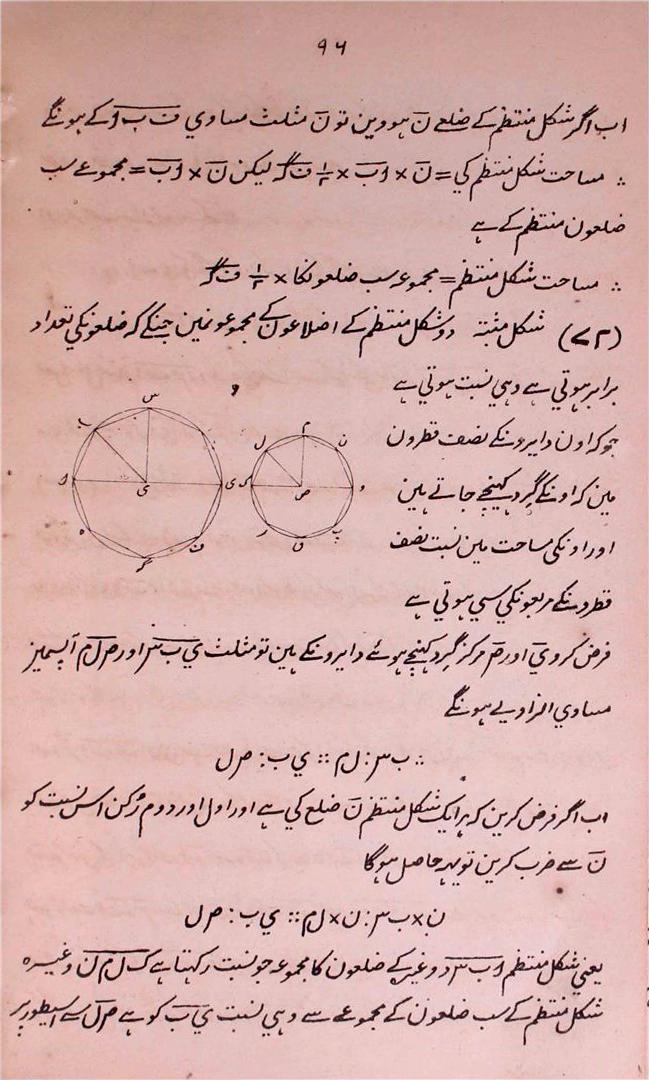 ۹۶
اب اگر شکل منتظم کے ضلعے ن ہووین تو ن مثلث مساوي ت ب ا کے ہونگے
∴ مساحت شکل منتظم کي = ن × اب × ۱/۲ ت گ لیکن ن × اب = مجموعے سب
ضلعون منتظم کے ہے
∴ مساحت شکل منتظم = مجموعہ سب ضلعونکا × ۱/۲ ت گ
(۷۲) شکل مثبتہ دو شکل منتظم کے اضلاعون کے مجموعونمین جنکے کہ ضلعونکي تعداد
برابر ہوتي ہے وہي نسبت ہوتي ہے
جو کہ اون دایرونکے نصف قطرون
مین کہ اونکے گرد کہنیچے جاتے ہین
اور اونکي مساحت مین نسبت نصف
قطرونکے مربعونکي سي ہوتي ہے
س
ب
ا
ي
ه
ف
م
ل
ن
ک
ص
و
ر
ق
پ
فرض کرو ي اور ص مرکز گرد کہنیچے ہوئے دایرونکے ہین تو مثلث ي ب س اور ص ل م آپسمیز
مساوي الزاویے ہونگے
∴ ب س : ل م :: ي ب : ص ل
اب اگر فرض کرین کہ ہر ایک شکل منتظم ن ضلع کي ہے اور اول اور دوم رُکن اس نسبت کو
ن سے ضرب کرین تو یہہ حاصل ہوگا
ن × ب س : ن × ل م :: ي ب : ص ل
یعني شکل منتظم ا ب س د وغیرہ کے ضلعون کا مجموعہ جو نسبت رکہتا ہے ک ل م ن وغیرہ
شکل منتظم کے سب ضلعون کے مجموعے سے وہي نسبت ي ب کو ہے ص ل سے اسیطور پر